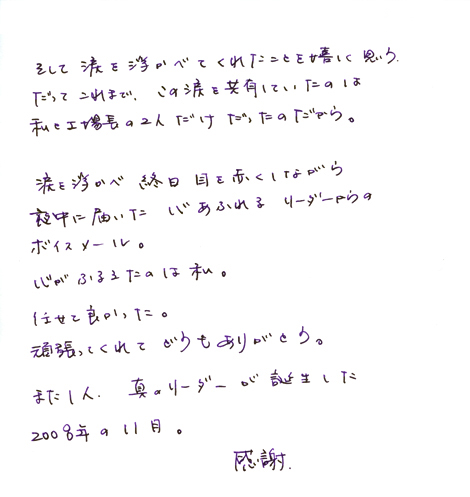 そして 涙を浮かべてくれたことを嬉しく思う.
だって これまで、この涙を共有していたのは
私と工場長の2人だけだったのだから。
涙を浮かべ 終日 目を赤くしながら
夜中に届いた 心あふれる リーダーからの
ボイスメール。
心がふるえたのは私。
任せて良かった。
頑張ってくれて どうもありがとう。
また1人. 真のリーダーが誕生した
2008年の11月。
感謝.